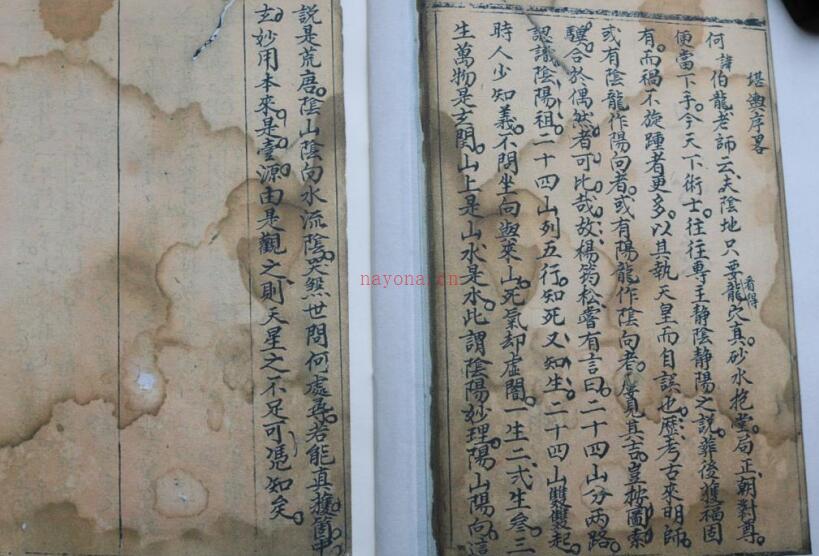 堪輿序畧
何諱伯龍老師云、夫陰地只要看得龍穴真。砂水抱堂局正、朝對尊。
便當下手。今天下術士。往往專主靜陰靜陽之説。葬後獲福固
有。而禍不旋踵者更多。以其執天皇而自誤也。歷考古來明師。
或有陰龍作陽向者。或有陽龍作陰向者。屢見其吉。豈按圖索
驥。合於偶然者可比哉。故楊筠松嘗有言曰。二十四山分兩路。
認識陰陽祖。二十四山列五行。知死又知生。二十四山雙雙起。
時人少知義。不問坐向與來山。死氣却虛閒。一生二弍生叁。三
生萬物是玄関。山上是山水是水。此謂陰陽妙理。陽山陽向這
説是荒唐。陰山陰向水流陰。哭煞世間何處尋。若能真獲箇中
玄。妙用本來是壹源。由是觀之。則天星之不足可憑知矣。
nayona.cn